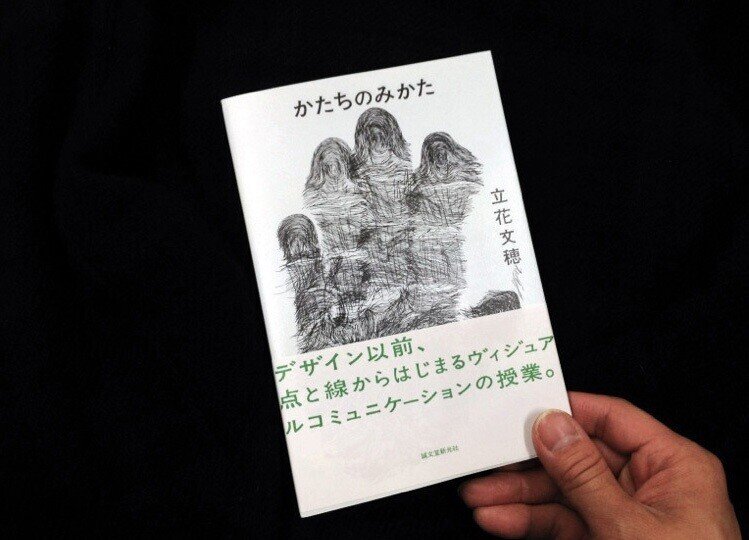 かたちのみかた
立花文穂
デザイン以前、
点と線からはじまるヴィジュア
ルコミュニケーションの授業。
誠文堂新光社